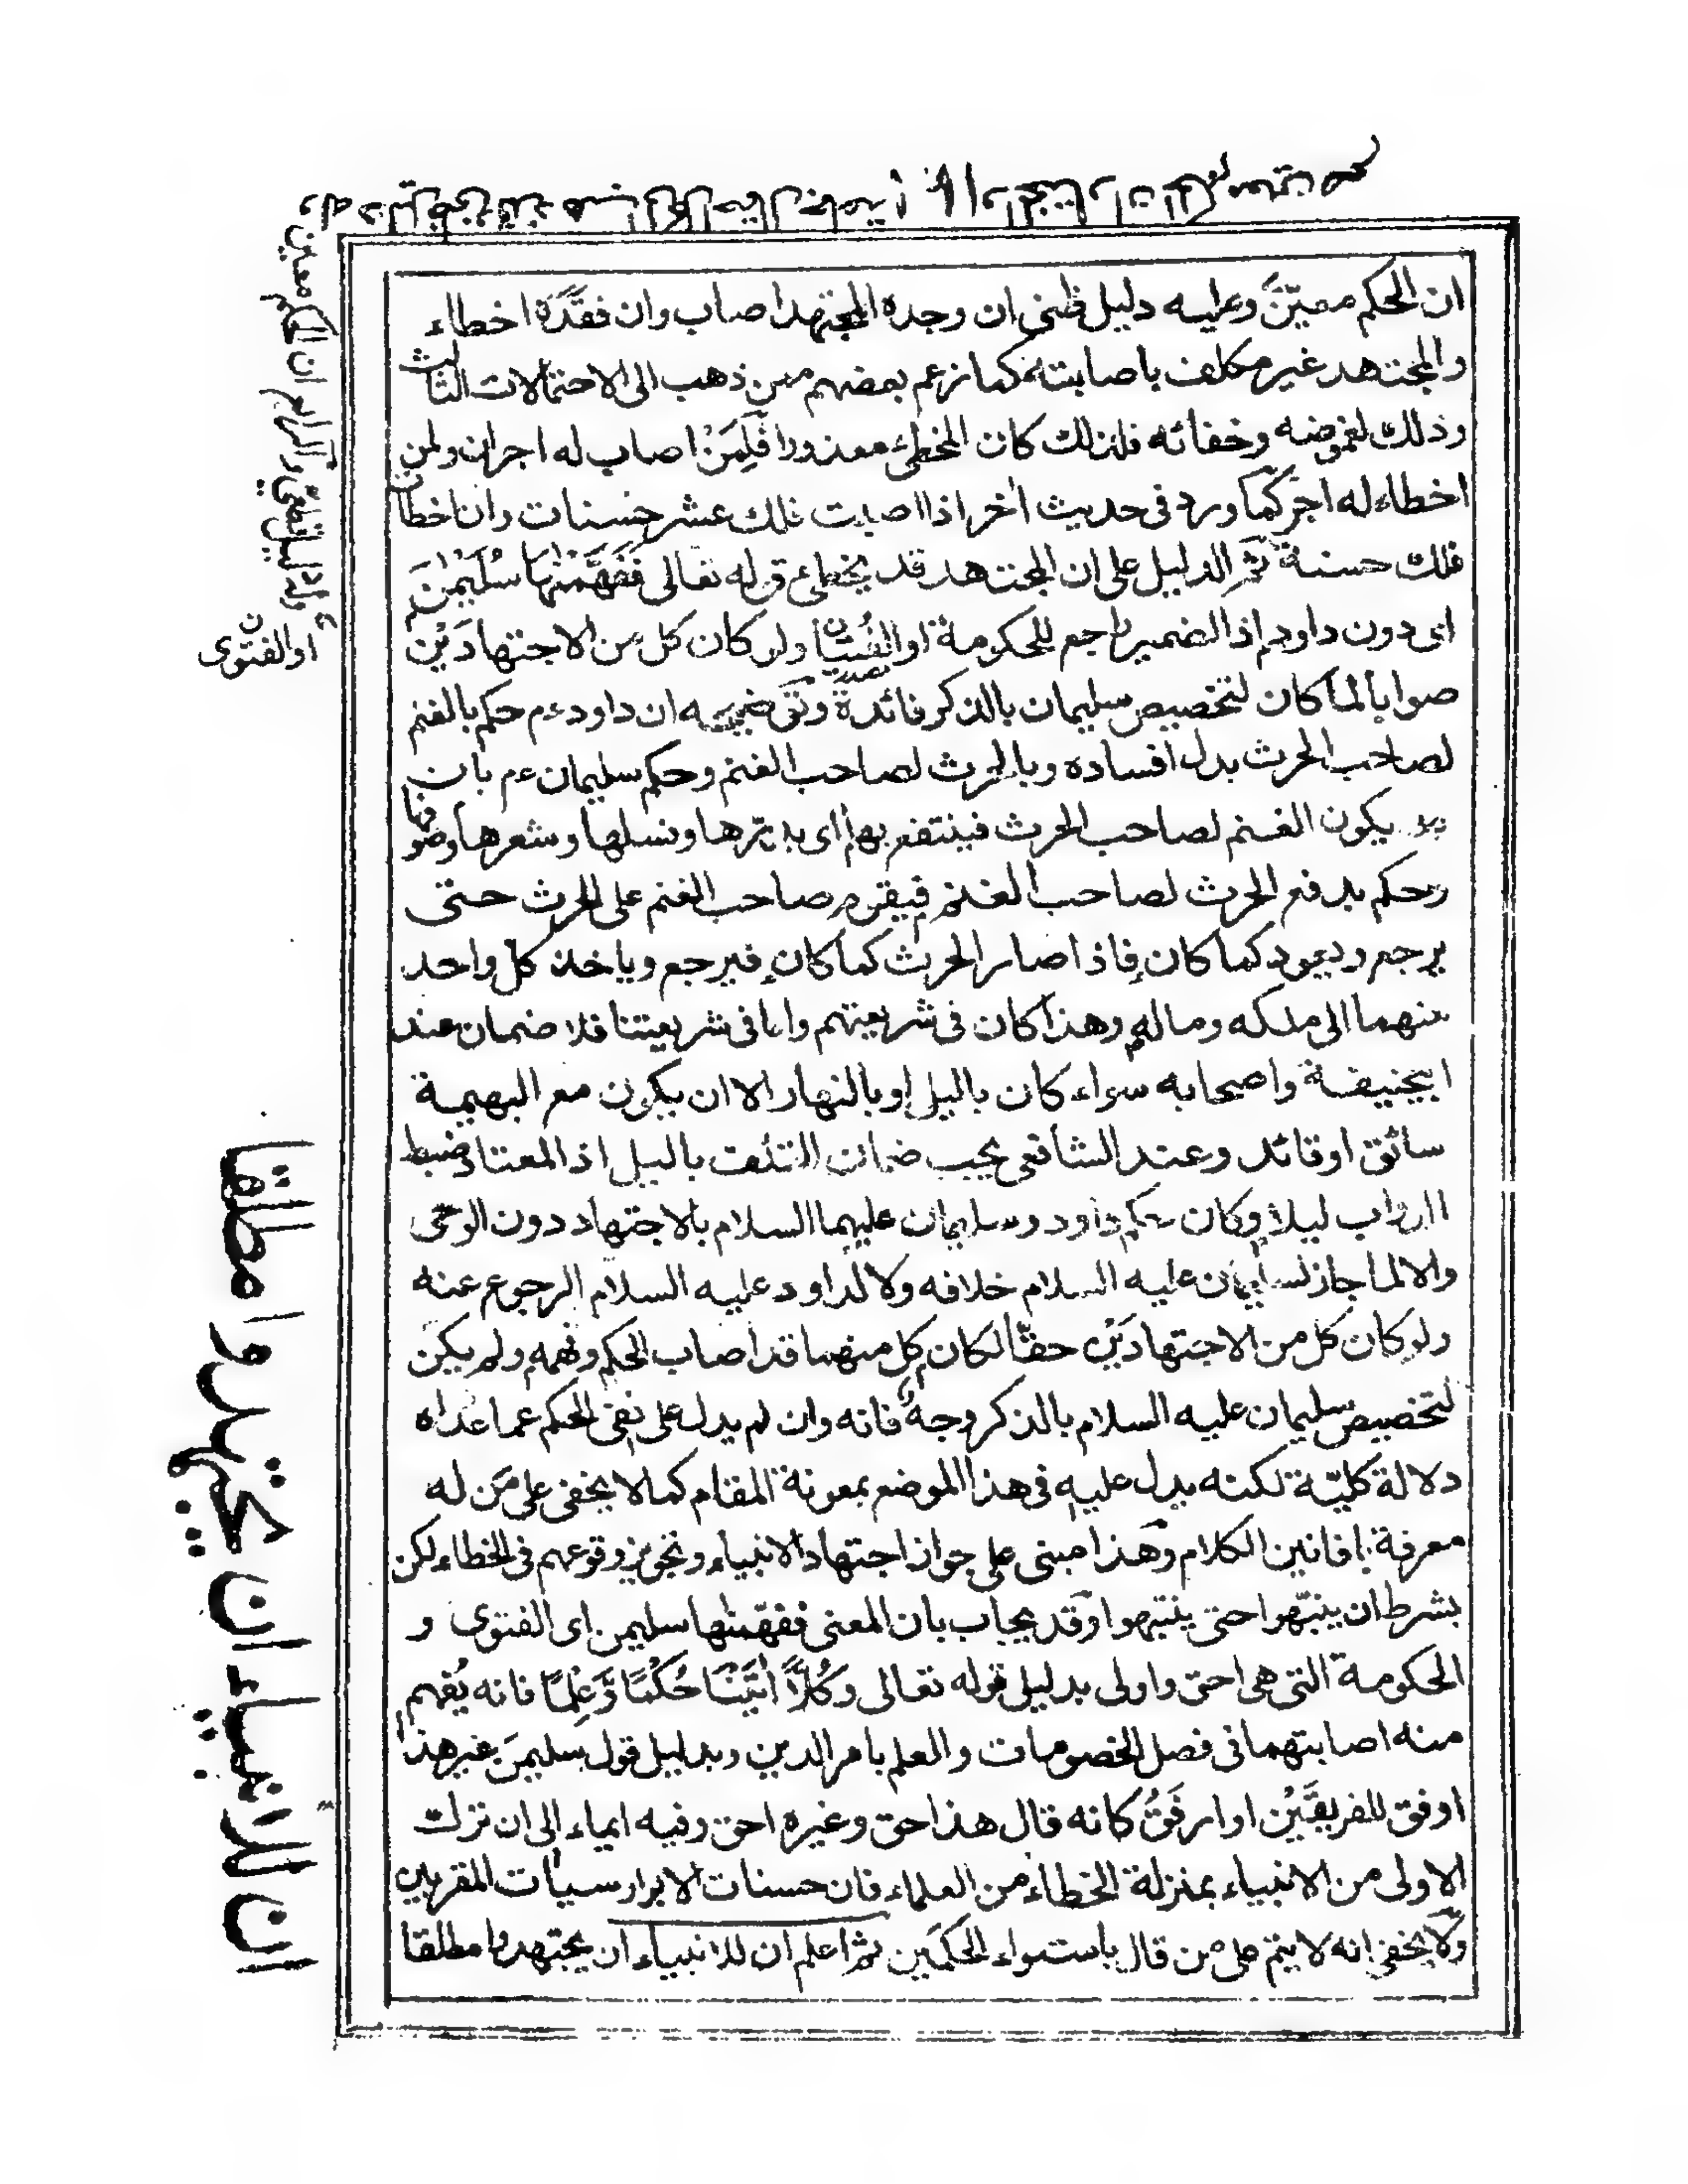 ان الحكم معيّنَ وعليه دليل ظنى ان وجده المجتهد اصاب وان فقَدَه اخطاء
والمجتهد غير مكلف باصابته كما زعم بعضهم ممن ذهب الى الاحتمالات الثالث
وذلك لغموضه وخفائه فلذلك كان المخطئ معذورا فلِمَنْ اصاب له اجران ولمن
اخطاء له اجر كما ورد فى حديث اخر اذا اصبت فلك عشر حسنات وان اخطات
فلك حسنة ثم الدليل على ان المجتهد قد يخطى قوله تعالى فَفَهَّمْنٰهَا سُلَيْمٰنَ
اى دون داود اذ الضمير راجع للحكومة او الفُتيا ولو كان كل من الاجتهادَيْن
صوابا لما كان لتخصيص سليمان بالذكر فائدة وتوضيحه ان داود ءم حكم بالغنم
لصاحب الحرث بدل افساده وبالحرث لصاحب الغنم وحكم سليمان ءم بان
يكون الغنم لصاحب الحرث فينتفع بها اى بدرّها ونسلها وشعرها وصوفها
وحكم بدفع الحرث لصاحب الغنم فيقوم صاحب الغنم على الحرث حتى
يرجع ويعود كما كان فاذا صار الحرث كما كان فيرجع وياخذ كل واحد
منهما الى ملكه وماله وهذا كان فى شريعتهم واما فى شريعتنا فلا ضمان عند
ابيحنيفة واصحابه سواء كان باليل او بالنهار الا ان يكون مع البهيمة
سائق او قائد وعند الشافعى يجب ضمان المتلف باليل اذ المعتاد ضبط
الدواب ليلا وكان حكم داود وسليمان عليهما السلام بالاجتهاد دون الوحى
والا لما جاز لسليمان عليه السلام خلافه ولا لداود عليه السلام الرجوع عنه
ولو كان كل من الاجتهادَيْن حقّا لكان كل منهما قد اصاب الحكم وفهمه ولم يكن
لتخصيص سليمان عليه السلام بالذكر وجهٌ فانه وان لم يدل على نفى الحكم عما عداه
دلالة كليّة لكنه يدل عليه فى هذا الموضع بمعونة المقام كما لا يخفى على مَن له
معرفة بافانين الكلام وهذا مبنى على جواز اجتهاد الانبياء وتجويز وقوعهم فى الخطاء لكن
بشرط ان ينبّهوا حتى ينتبهوا وقد يجاب بان المعنى ففهّمنٰها سليمن اى الفتوى و
الحكومة التى هى احق واولى بدليل قوله تعالى وَكُلًّا اٰتَيْنَا حُكْمًا وَّعِلْمًا فانه يُفهم
منه اصابتهما فى فصل الخصومات والعلم بامر الدين وبدليل قول سليمنَ غير هذا
اوفق للفريقَيْن او ارفَقُ كانه قال هذا حق وغيره احق وفيه ايماء الى ان ترك
الاولى من الانبياء بمنزلة الخطاء من العلماء فان حسنات الابرار سيأت المقربين
ولا يخفى انه لا يتم على من قال باستواء الحكمَين ثم اعلم ان للانبياء ان يجتهدوا مطلقا
او الفتوى
ان للانبياء ان يجتهدوا مطلقا